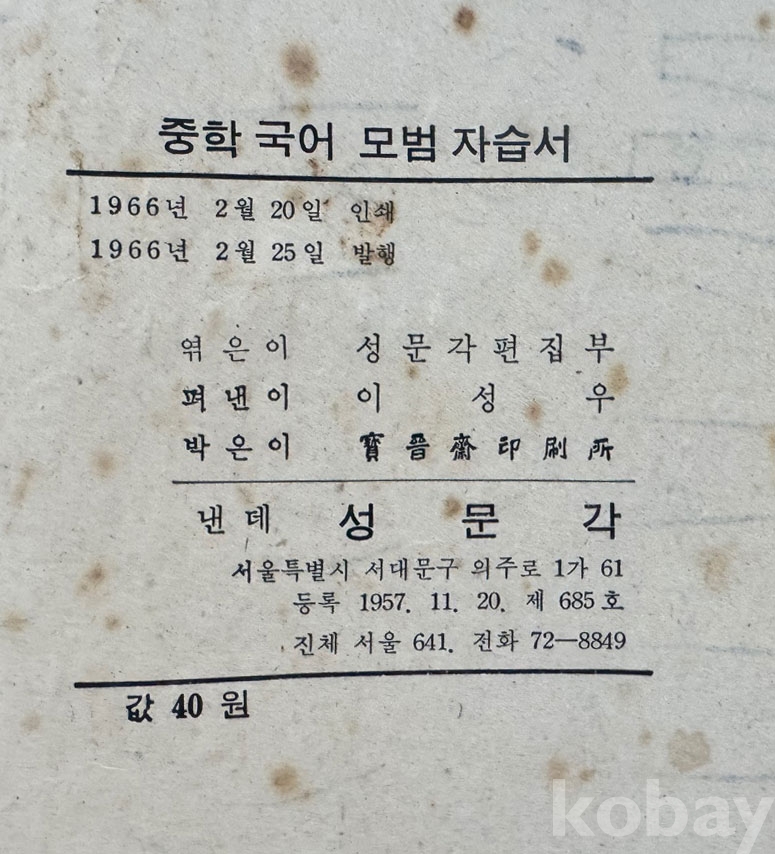 중학 국어 모범 자습서
1966년 2월 20일 인쇄
1966년 2월 25일 발행
엮은이 성문각편집부
펴낸이 이성우
박은이 寶晋齋印刷所
낸데 성문각
서울특별시 서대문구 의주로 1가 61
등록 1957. 11. 20. 제 685호
진체 서울 641. 전화 72—8849
값 40 원
kobay